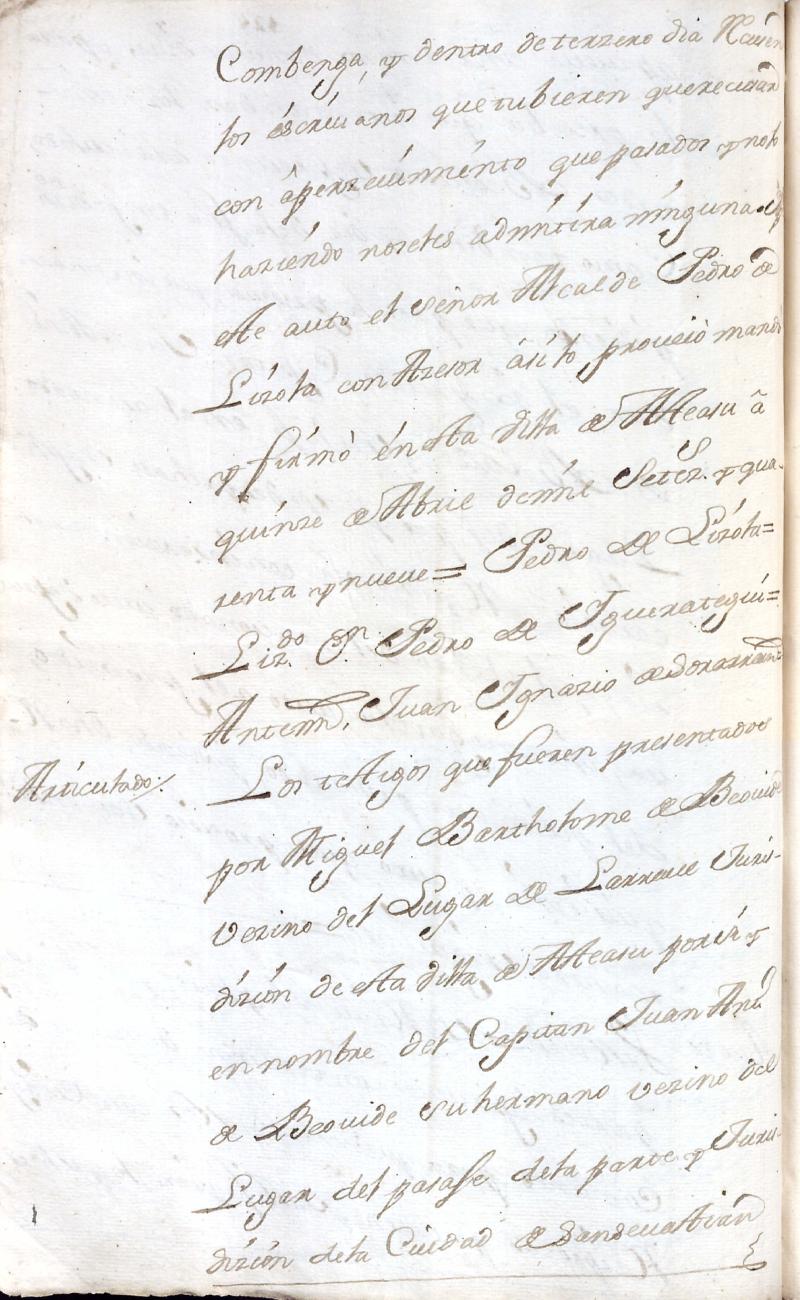 Combenga, y dentro de terzero dia Recusen
los éscriuanos que tubieren que recusar
con ápercuimiénto que pasados y no lo
haziéndo no seles admitira ninguna. y p
este auto el Señor Alcalde Pedro de
Lizola con Azesor ási lo, proueiò mando
y firmò én esta Villa de Asteasu â
quinze de Abril de mil Setez.s y qua-
renta y nueue = Pedro de Lizola =
Liz.do D.n Pedro de Yguerategui =
Antemi, Juan Ygnazio de Sorarrain
Articulado:/. Los testigos que fueren presentados
por Miguel Bartholome de Beouide
Vezino del Lugar de Larraul Juris-
dizión de esta Villa de Asteasu por si y
en nombre del Capitan Juan Ant.o
de Beouide su hermano vezino del
Lugar del pasaße dela parte y Juris-
dizión dela Ciudad de San Sevastián